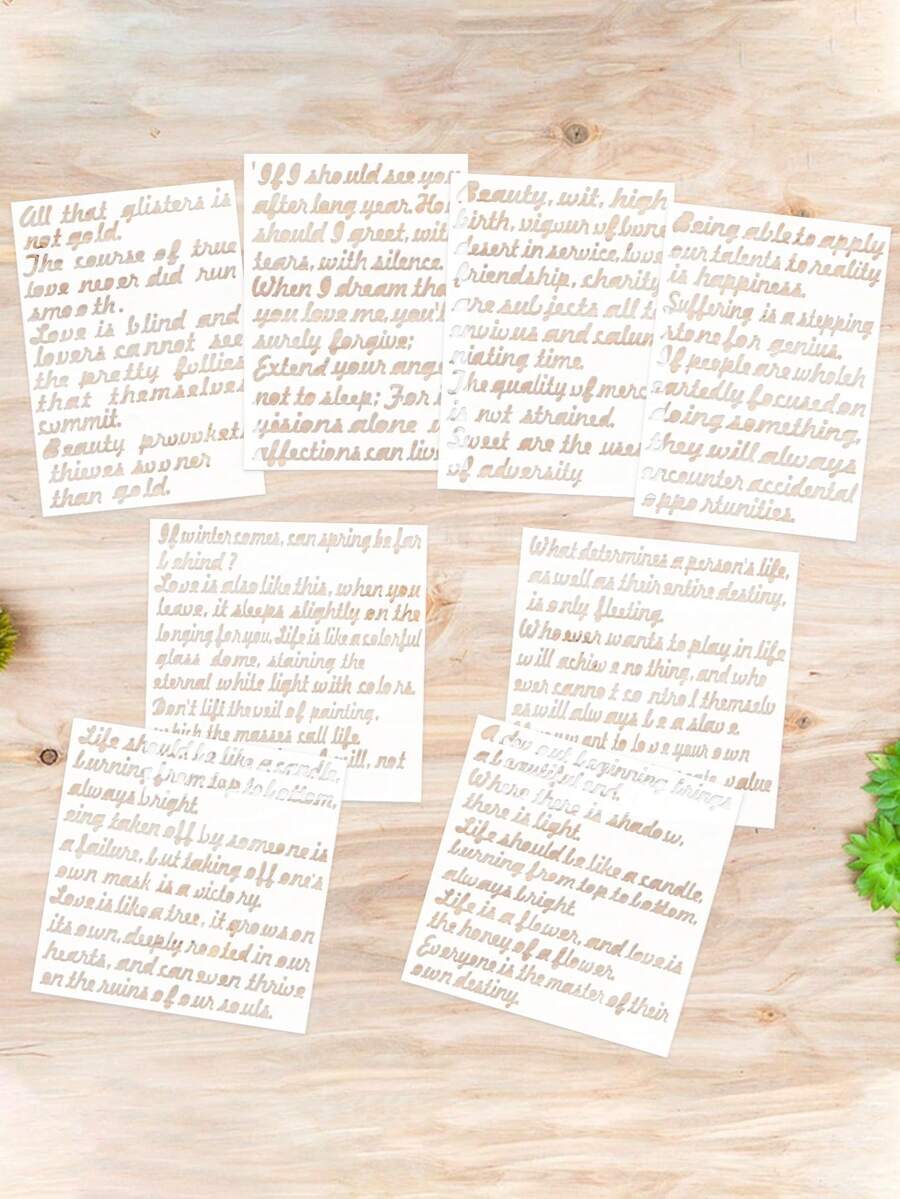 All that glisters is
not gold.
The course of true
love never did run
smooth.
Love is blind and
lovers cannot see
the pretty follies
that themselves
commit.
Beauty provoket
thieves sooner
than gold.
'If I should see you
after long year. Ho
should I greet, wit
tears, with silence
When I dream tha
you love me, you'l
surely forgive;
Extend your ang
not to sleep; For
yssions alone
affections can liv
Beauty, wit, high
birth, vigour of bone
desert in service, love
friendship, charity
are subjects all t
envious and calum
niating time.
The quality of merc
is not strained.
Sweet are the uses
of adversity
Being able to apply
our talents to reality
is happiness.
Suffering is a stepping
stone for genius.
If people are wholeh
eartedly focused on
doing something,
they will always
encounter accidental
opportunities.
If winter comes, can spring be far
behind?
Love is also like this, when you
leave, it sleeps slightly on the
longing for you, Life is like a colorful
glass dome, staining the
eternal white light with colors.
Don't lift the veil of painting,
which the masses call life
will, not
What determines a person's life,
as well as their entire destiny,
is only fleeting.
Whoever wants to play in life
will achieve nothing, and who
ever cannot control themselv
es will always be a slave
want to love your own
value
Life should be like a candle,
burning from top to bottom,
always bright.
eing taken off by someone is
a failure, but taking off one's
own mask is a victory.
Love is like a tree, it grows on
its own, deeply rooted in our
hearts, and can even thrive
on the ruins of our souls.
A beginning brings
a beautiful end.
Where there is shadow,
there is light.
Life should be like a candle,
burning from top to bottom,
always bright.
Life is a flower, and love is
the honey of a flower
Everyone is the master of their
own destiny.